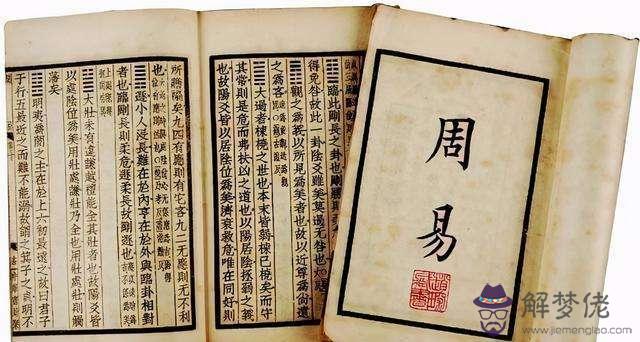 ䷒臨此剛長之卦也剛勝則柔
得免咎故此一卦陰爻雖美莫過无咎也
䷓觀之爲義以所見爲美者也故以近尊爲尚遠
之爲吝
䷛大過者棟橈之世也本末皆弱棟已橈矣而守
其常則是危而弗扶凶之道也以陽居陰拯弱之義
也故陽爻皆以居陰位爲美濟衰救危唯在同好則
所贍褊矣九四有應則有它吝九二无應則无不利
也
䷠遯小人浸長難在於內亨在於外與臨卦相對
者也臨剛長則柔危遯柔長故剛遯也
䷡大壯未有違謙越禮能全其壯者也故陽爻皆
以處陰位爲美用壯處謙壯乃全也用壯處壯則觸
藩矣
䷣明夷爲闇之主在於上六初最遠之故曰君子
于行五最近之而難不能溺故謂之箕子之貞明不
周易
解梦佬
www.jiemenglao.com